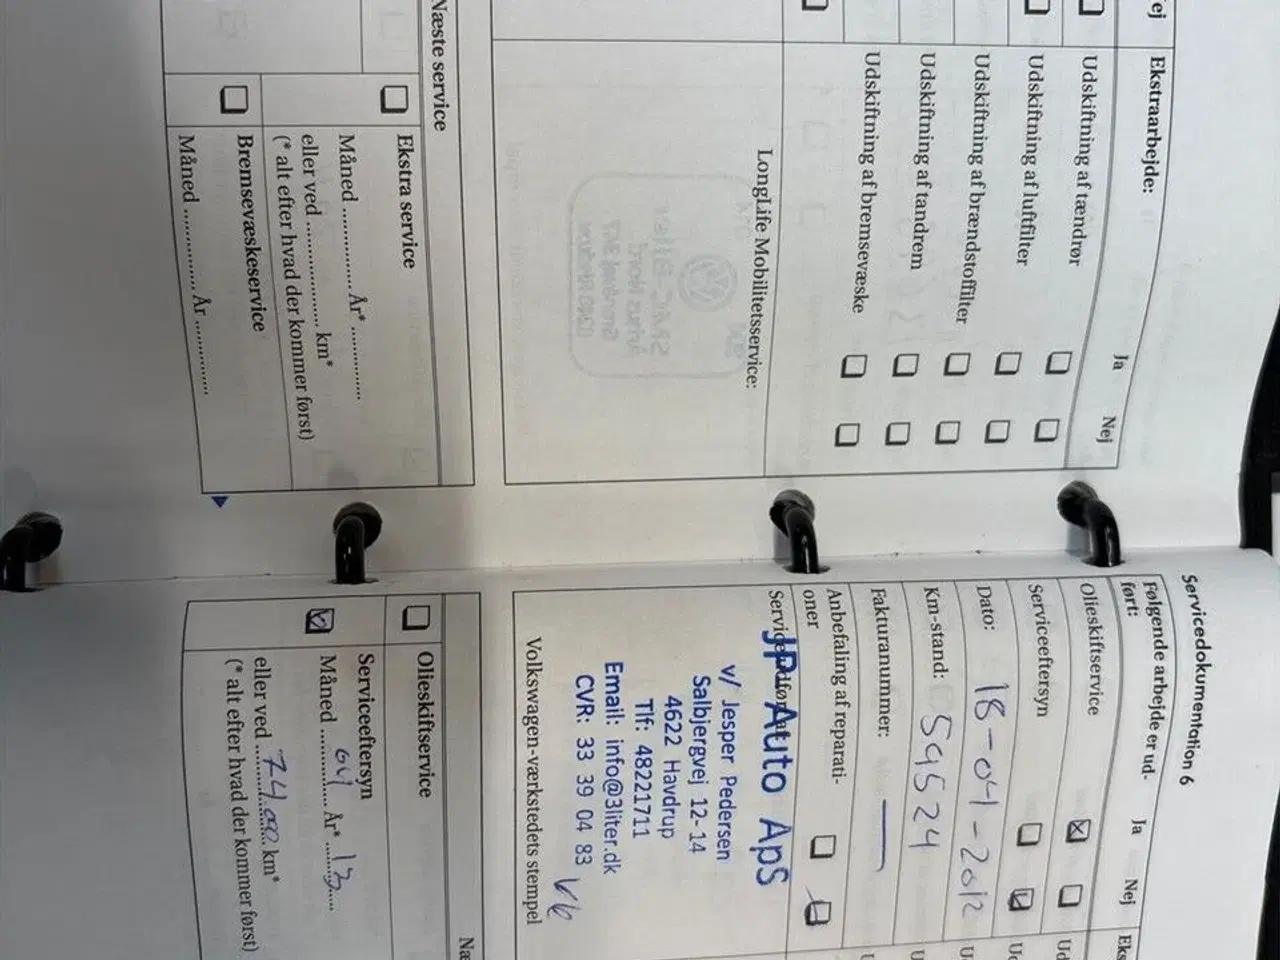 ej
Ekstraarbejde:
Ja
Nej
Udskiftning af tændrør
Udskiftning af luftfilter
Udskiftning af brændstoffilter
Udskiftning af tandrem
Udskiftning af bremsevæske
LongLife Mobilitetsservice:
Næste service
Ekstra service
Måned .............. År* ..............
eller ved ..................... km*
(* alt efter hvad der kommer først)
Bremsevæskeservice
Måned .............. År ..............
Servicedokumentation 6
Følgende arbejde er ud-
ført:
Ja
Nej
Eks
Olieskiftservice
Ud
Serviceeftersyn
Dato: 18-04-2012
Km-stand: 59524
Fakturanummer:
Anbefaling af reparati-
oner
JP Auto ApS
v/ Jesper Pedersen
Salbjergvej 12-14
4622 Havdrup
Tlf: 48221711
Email: info@3liter.dk
CVR: 33 39 04 83
Volkswagen-værkstedets stempel
Næ
Olieskiftservice
Serviceeftersyn
Måned 04 År* 13
eller ved km*
(* alt efter hvad der kommer først)